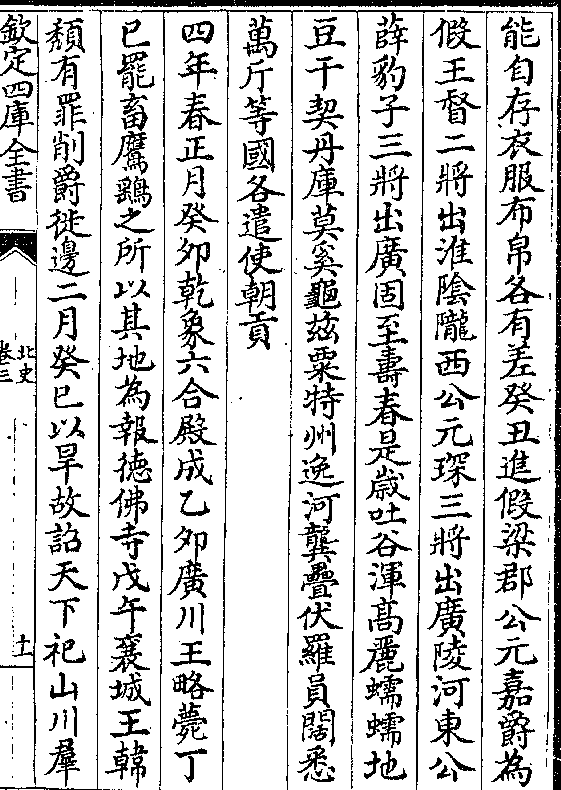 能自存衣服布帛各有差癸丑進假梁郡公元嘉爵為
假王督二將出淮陰隴西公元琛三將出廣陵河東公
薛豹子三將出廣固至壽春是歲吐谷渾髙麗蠕蠕地
豆干契丹庫莫奚龜兹粟特州逸河龔疊伏羅員闊悉
萬斤等國各遣使朝貢
四年春正月癸卯乾象六合殿成乙卯廣川王略薨丁
巳罷畜鷹鷂之所以其地為報德佛寺戊午襄城王韓
頽有罪削爵徙邊二月癸巳以旱故詔天下祀山川羣
欽定四庫全書
北史
卷三
十一